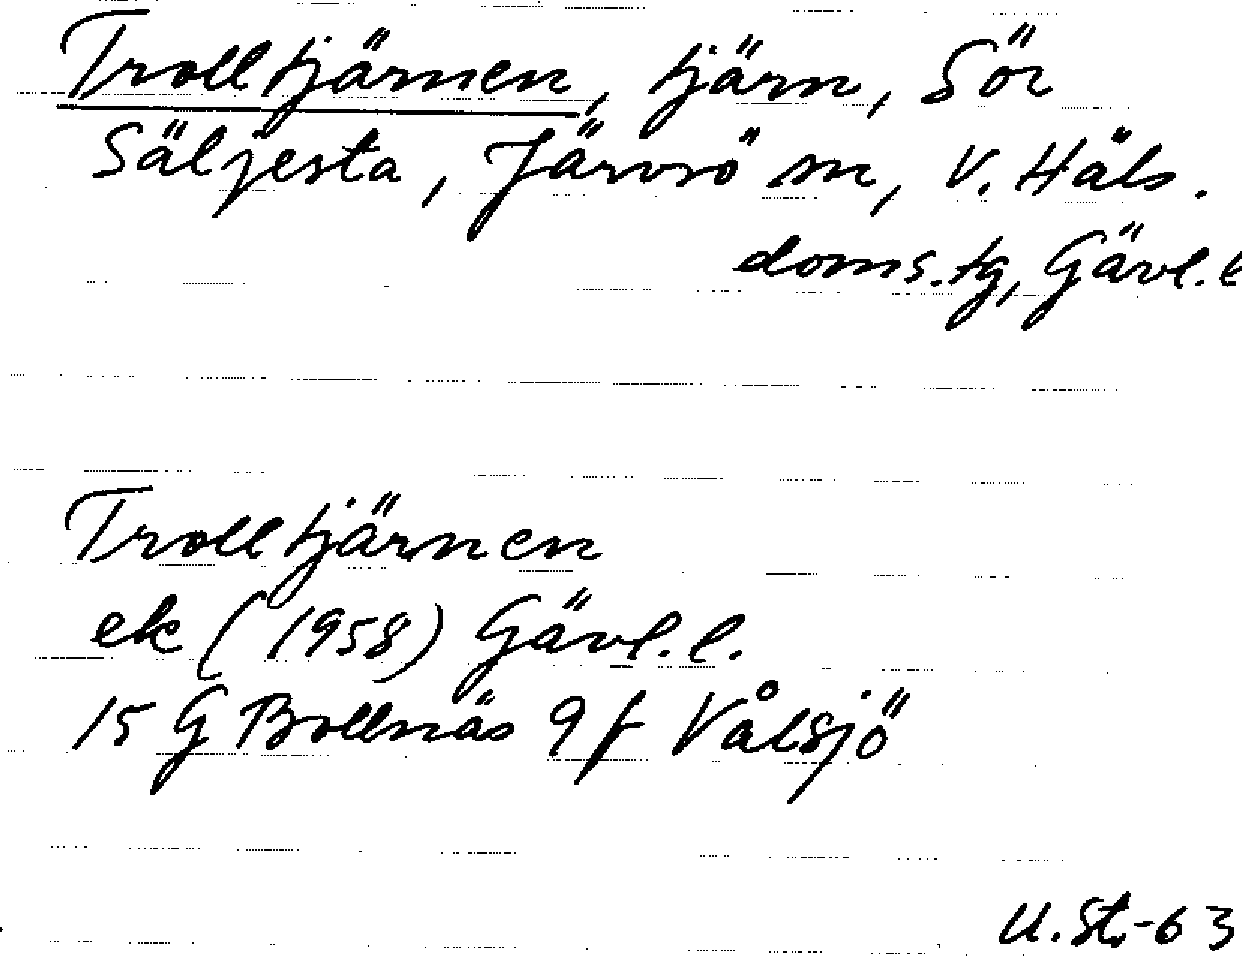 Trolltjärnen, tjärn, Sör
Säljesta, Järvsö sn, V. Häls.
doms.tg, Gävl.l
Trolltjärnen
ek (1958) Gävl.l.
15 G Bollnäs 9f Vålsjö
U.St.-63